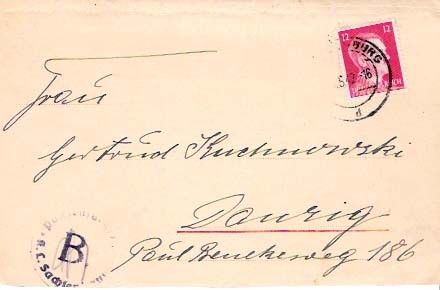 12 12
BURG
Frau
Gertrud Kuchnowski
Danzig
Paul Benekeweg 186
B